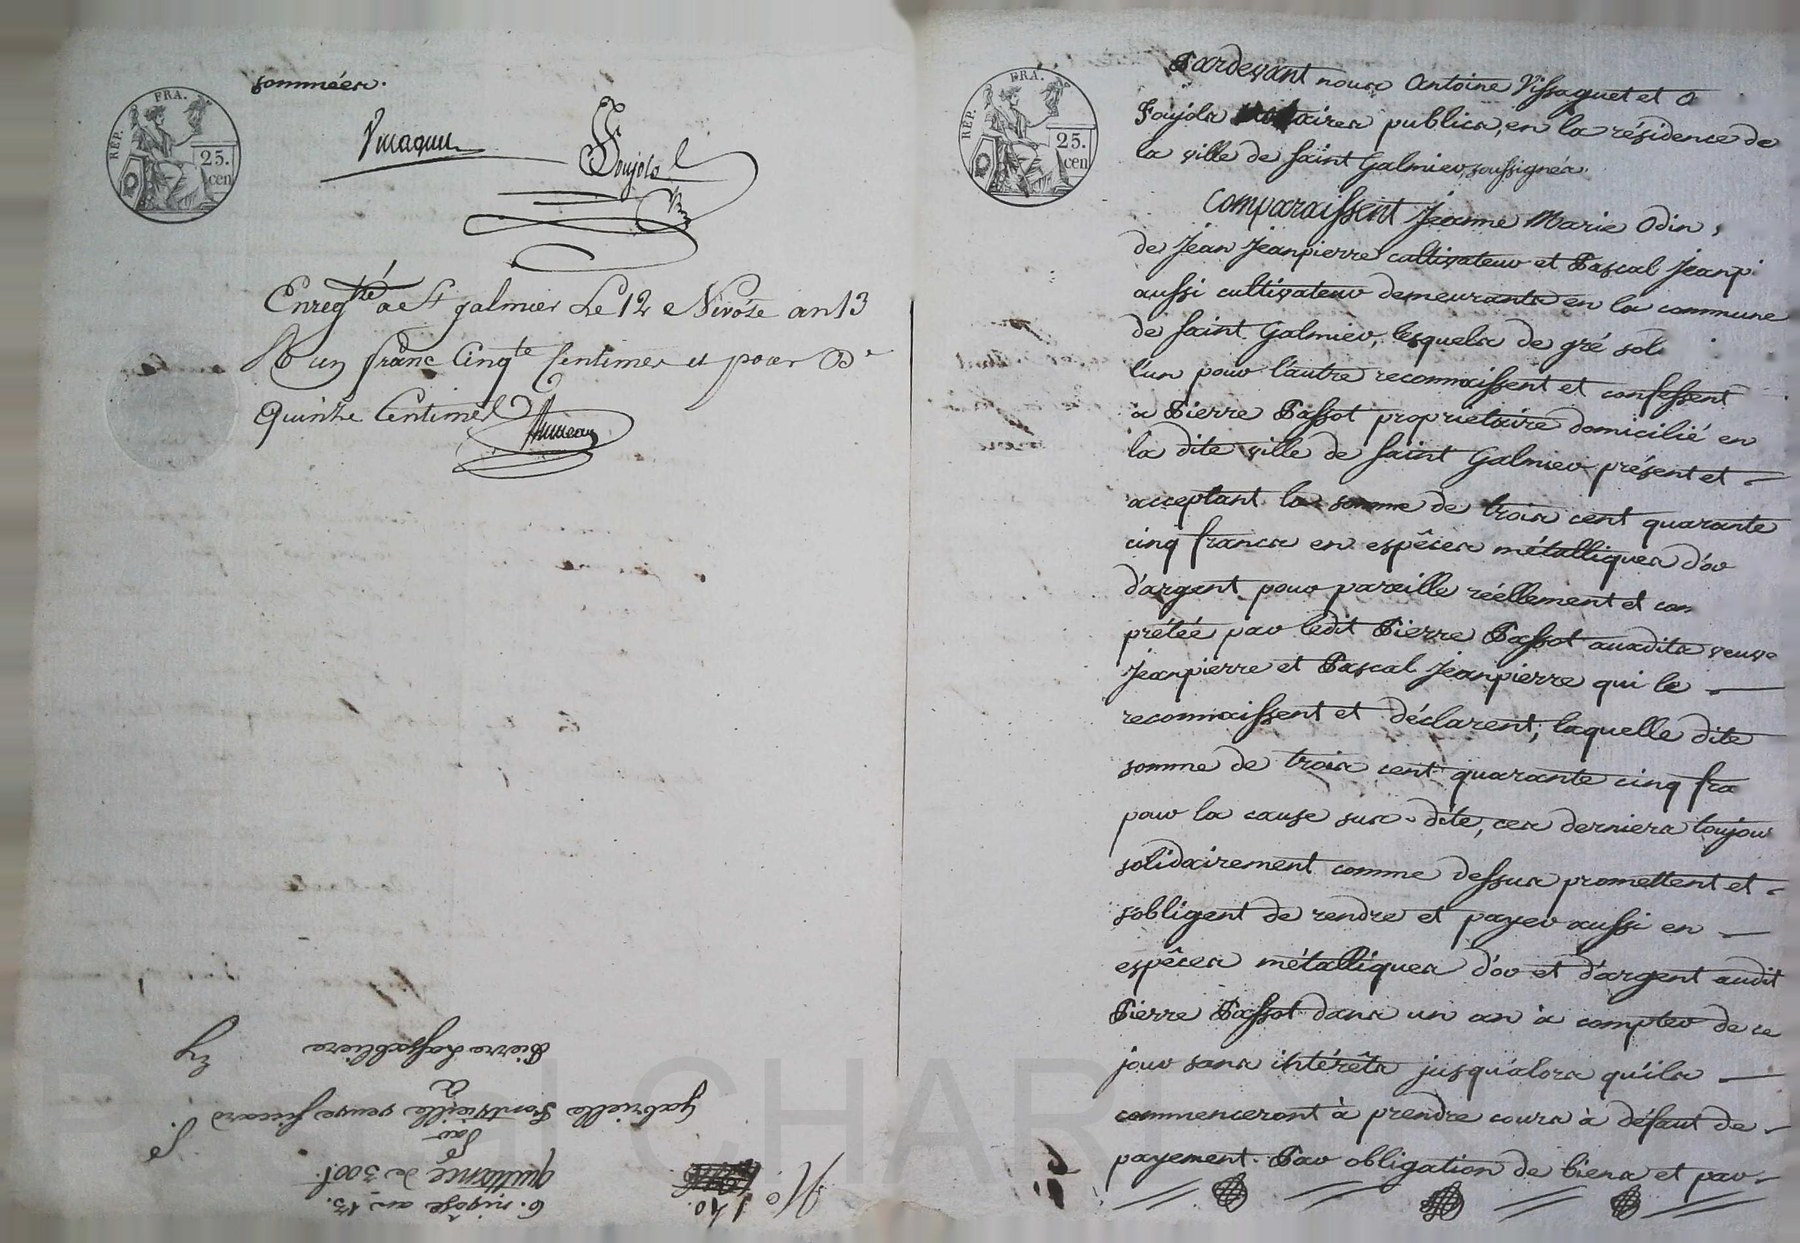 sommées.
RÉP. FRA.
25.
cen
Foujols
Enregté a St galmier Le 12 Nivôse an 13
R un franc Cinqte Centimes et pour
quinze Centimes
Pierre Lassabliere
à
Gabrielle Fontvieille veuve
par
quittance de 300f.
6. nivôse an 13.
No. 140.
RÉP. FRA.
25.
cen
Pardevant nous Antoine Vissaguet et
Foujols notaires publics, en la résidence de
la ville de Saint Galmier, soussignés.
Comparaissent Jeanne Marie Odin,
de Jean Jeanpierre cultivateur et Pascal Jeanp
aussi cultivateur demeurants en la commune
de Saint Galmier, lesquels de gré sol
l'un pour l'autre reconnaissent et confessent
à Pierre Passot propriétaire domicilié en
la dite ville de Saint Galmier présent et
acceptant la somme de trois cent quarante
cinq francs en espêces métalliques d'or
d'argent pour pareille réellement et con
prétée par ledit Pierre Passot auxdits veuve
Jeanpierre et Pascal Jeanpierre qui le
reconnaissent et déclarent, laquelle dite
somme de trois cent quarante cinq fra
pour la cause sus-dite, ces derniers toujour
solidairement comme dessus promettent et
s'obligent de rendre et payer aussi en
espêces métalliques d'or et d'argent audit
Pierre Passot dans un an à compter de ce
jour sans intérêts jusqu'alors qu'ils
commenceront à prendre cours à défaut de
payement. Par obligation de biens et par